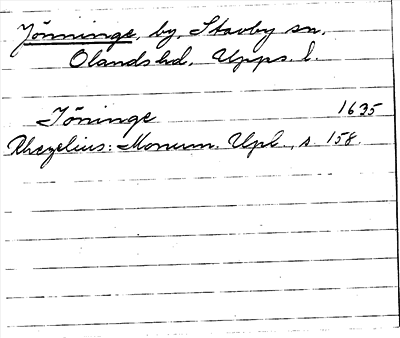 Jönninge, by, Stavby sn,
Olands hd, Upps. l.
Jöninge 1635
Rhezelius: Monum. Upl., s. 158.